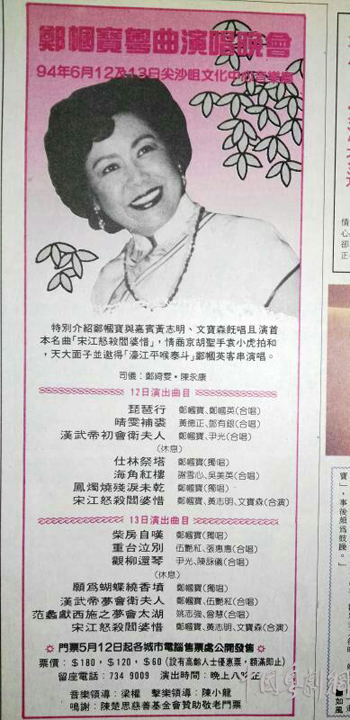 鄭幗寶粵曲演唱晚會
94年6月12及13日尖沙咀文化中心音樂廳
特別介紹鄭幗寶與嘉賓黃志明、文寶森既唱且演首
本名曲「宋江怒殺閻婆惜」,情商京胡聖手袁小虎拍和
,天大面子並邀得「濠江平喉泰斗」鄭幗英客串演唱。
司儀:鄭綺雯・陳永康
12日演出曲目
琵琶行 鄭幗寶、鄭幗英(合唱)
晴雯補裘 黃德正、鄧有銀(合唱)
漢武帝初會衛夫人 鄭幗寶、尹光(合唱)
(休息)
仕林祭塔 鄭幗寶(獨唱)
海角紅樓 謝雪心、吳美英(合唱)
鳳燭燒殘淚未乾 鄭幗寶(獨唱)
宋江怒殺閻婆惜 鄭幗寶、黃志明、文寶森(合演)
13日演出曲目
柴房自嘆 鄭幗寶(獨唱)
重台泣別 伍艷紅、張惠惠(合唱)
觀柳還琴 尹光、陳詠儀(合唱)
(休息)
願為蝴蝶繞香墳 鄭幗寶(獨唱)
漢武帝夢會衛夫人 鄭幗寶、伍艷紅(合唱)
范蠡獻西施之夢會太湖 姚志強、曾慧(合唱)
宋江怒殺閻婆惜 鄭幗寶、黃志明、文寶森(合演)
☆門票5月12日起各城市電腦售票處公開發售
票價:$180,$120,$60(設有高齡人士優惠票,額滿即止)
留座電話:734 9009 演出時間:晚上八時正
音樂領導:梁權 擊樂領導:陳小龍
鳴謝:陳楚思慈善基金會贊助敬老門票
情
心
卻
正
寶
」,事後
頗為
鼓噪。
如
風